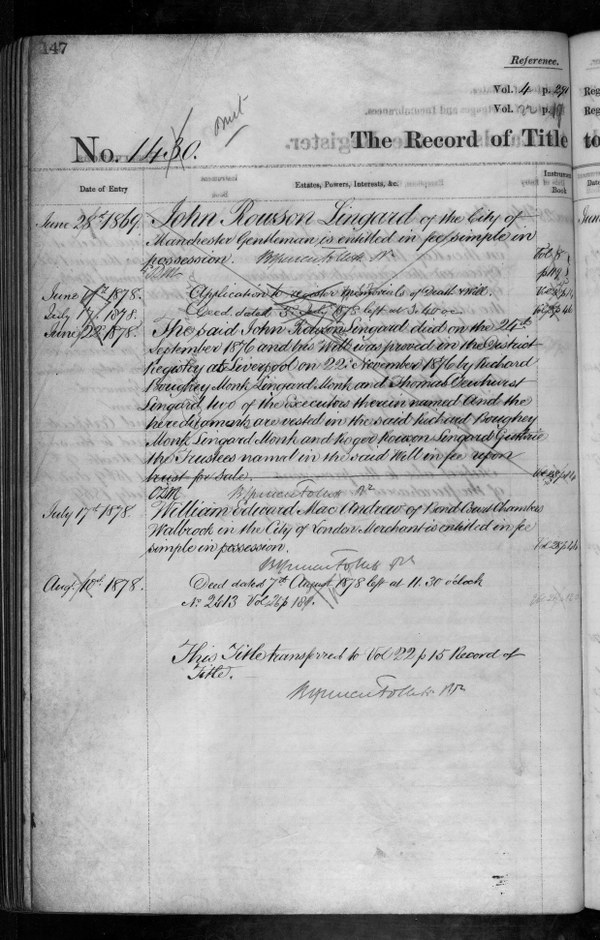 147
Reference.
Vol. 4 p. 291
Vol. 22 p.
No. 1430. The Record of Title
Date of Entry Estates, Powers, Interests, &c. Instrument Book
June 28th 1869. John Rowson Lingard of the City of
Manchester Gentleman is entitled in fee simple in
possession.
June 1878. Application to register Memorials of Death & Will.
July 17th 1878. Deed dated 3rd July 1878 left at 3.40 o'c.
June 22 1878. The said John Rowson Lingard died on the 24th
September 1876 and his Will was proved in the District
Registry at Liverpool on 22nd November 1876 by Richard
Boughey Monk Lingard Monk and Thomas Dewhurst
Lingard two of the executors therein named And the
hereditaments are vested in the said Richard Boughey
Monk Lingard Monk and Roger Rowson Lingard Guthrie
the Trustees named in the said Will in fee upon
trust for Sale.
July 17th 1878. William Edward Mac Andrew of Bond Court Chambers
Walbrook in the City of London Merchant is entitled in fee
simple in possession.
Aug. 10th 1878. Deed dated 7th August 1878 left at 11.30 o'clock
No 2613 Vol 26 p 189.
This Title transferred to Vol 22 p 15 Record of
Title.